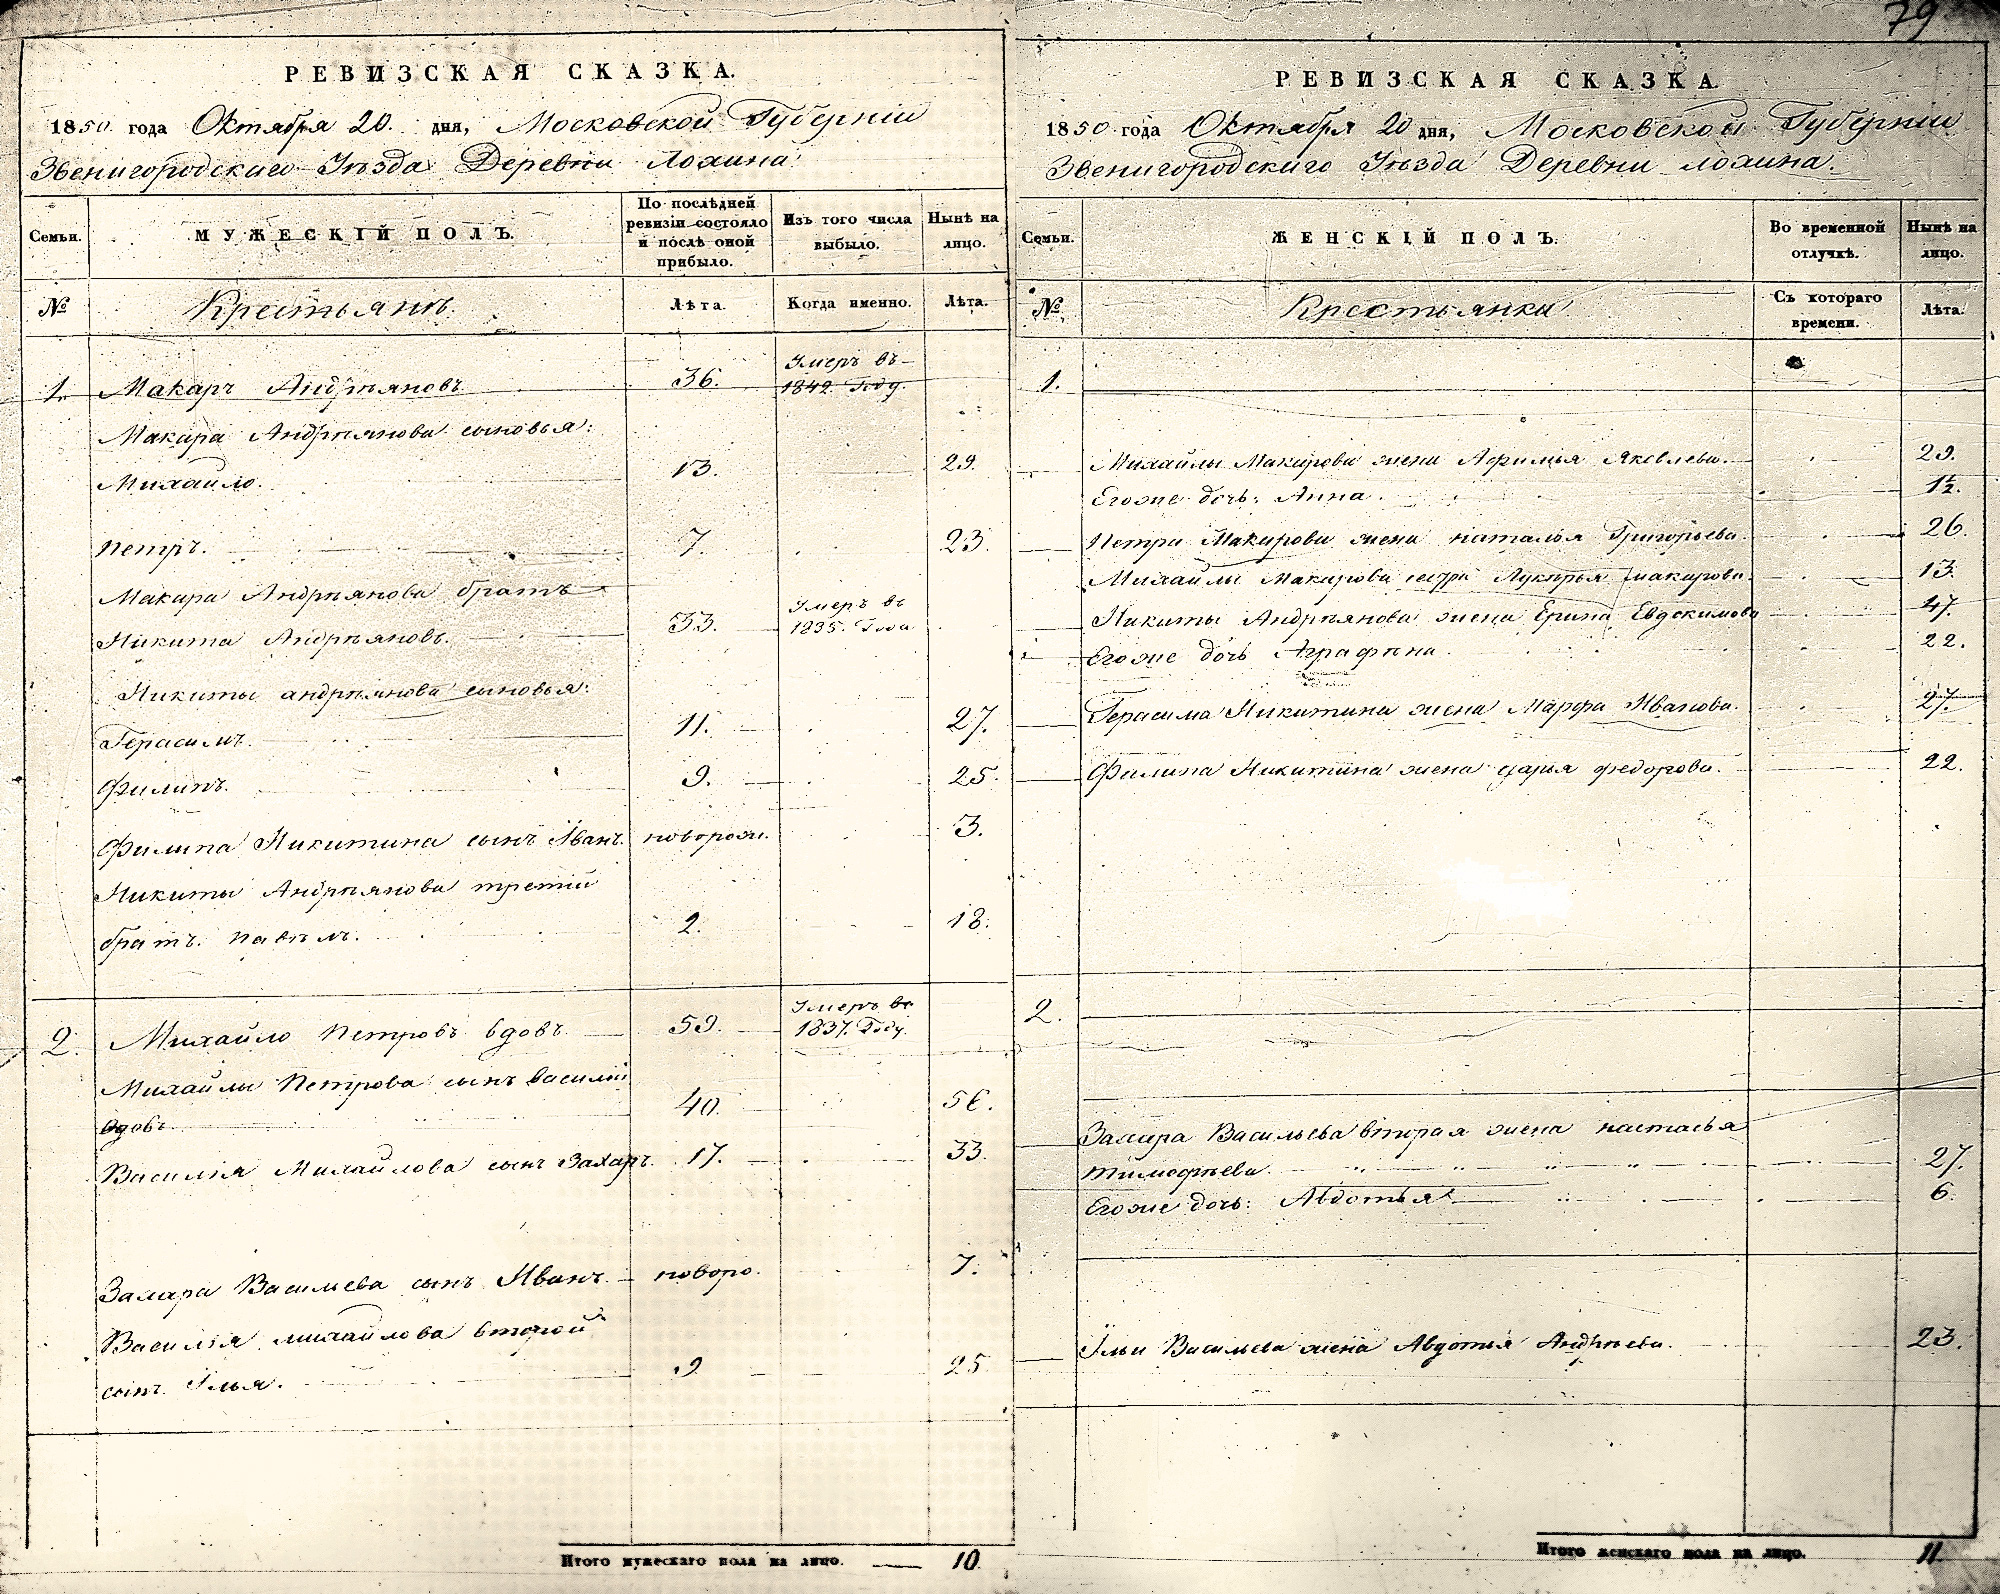 РЕВИЗСКАЯ СКАЗКА.
1850 года Октября 20. дня, Московской Губерніи
Звенигородскаго Уѣзда Деревни Лохина
Семьи.
МУЖЕСКІЙ ПОЛЪ.
По послѣдней ревизіи состояло и послѣ оной прибыло.
Изъ того числа выбыло.
Нынѣ на лицо.
№
Крестьянъ.
Лѣта.
Когда именно.
Лѣта.
1. Макаръ Андрѣяновъ 36. Умеръ въ 1842 Году.
Макара Андрѣянова сыновья:
Михайло. 13. 29.
Петръ. 7. 23.
Макара Андрѣянова братъ
Никита Андрѣяновъ. 33. Умеръ въ 1835. Года
Никиты андрѣянова сыновья:
Герасимъ. 11. 27.
Филипъ. 9. 25.
Филипа Никитина сынъ Иванъ. новорож. 3.
Никиты Андрѣянова третій
братъ Павѣлъ. 2. 18.
2. Михайло Петровъ вдовъ 59. Умеръ въ 1837. Году.
Михайлы Петрова сынъ василій
вдовъ 40. 56.
Василія Михайлова сынъ Захаръ. 17. 33.
Захара Васильева сынъ Иванъ. новоро. 7.
Василія михайлова второй
сынъ Илья. 9 25
Итого мужескаго пола на лицо. 10.
79
РЕВИЗСКАЯ СКАЗКА
1850 года Октября 20 дня, Московской Губерніи
Звенигородскаго Уѣзда Деревни лохина.
Семьи.
ЖЕНСКІЙ ПОЛЪ.
Во временной отлучкѣ.
Нынѣ на лицо.
№
Крестьянки
Съ котораго времени.
Лѣта.
1.
Михайлы Макарова жена Афимья Яковлева. 29.
Егоже дочь: Анна. 1½.
Петра Макарова жена наталья Григорьева. 26.
Михайлы Макарова сестра Лукерья макарова. 13.
Никиты Андрѣянова жена Ерина Евдокимова 47.
Егоже дочь Аграфина. 22.
Герасима Никитина жена Марфа Иванова. 27.
Филипа Никитина жена дарья федорова. 22.
2.
Захара Васильева вторая жена настасья
тимофѣева. 27.
Егоже дочь: Авдотья 6.
Ильи Васильева жена Авдотья Андрѣева. 23.
Итого женскаго пола на лицо. 11.